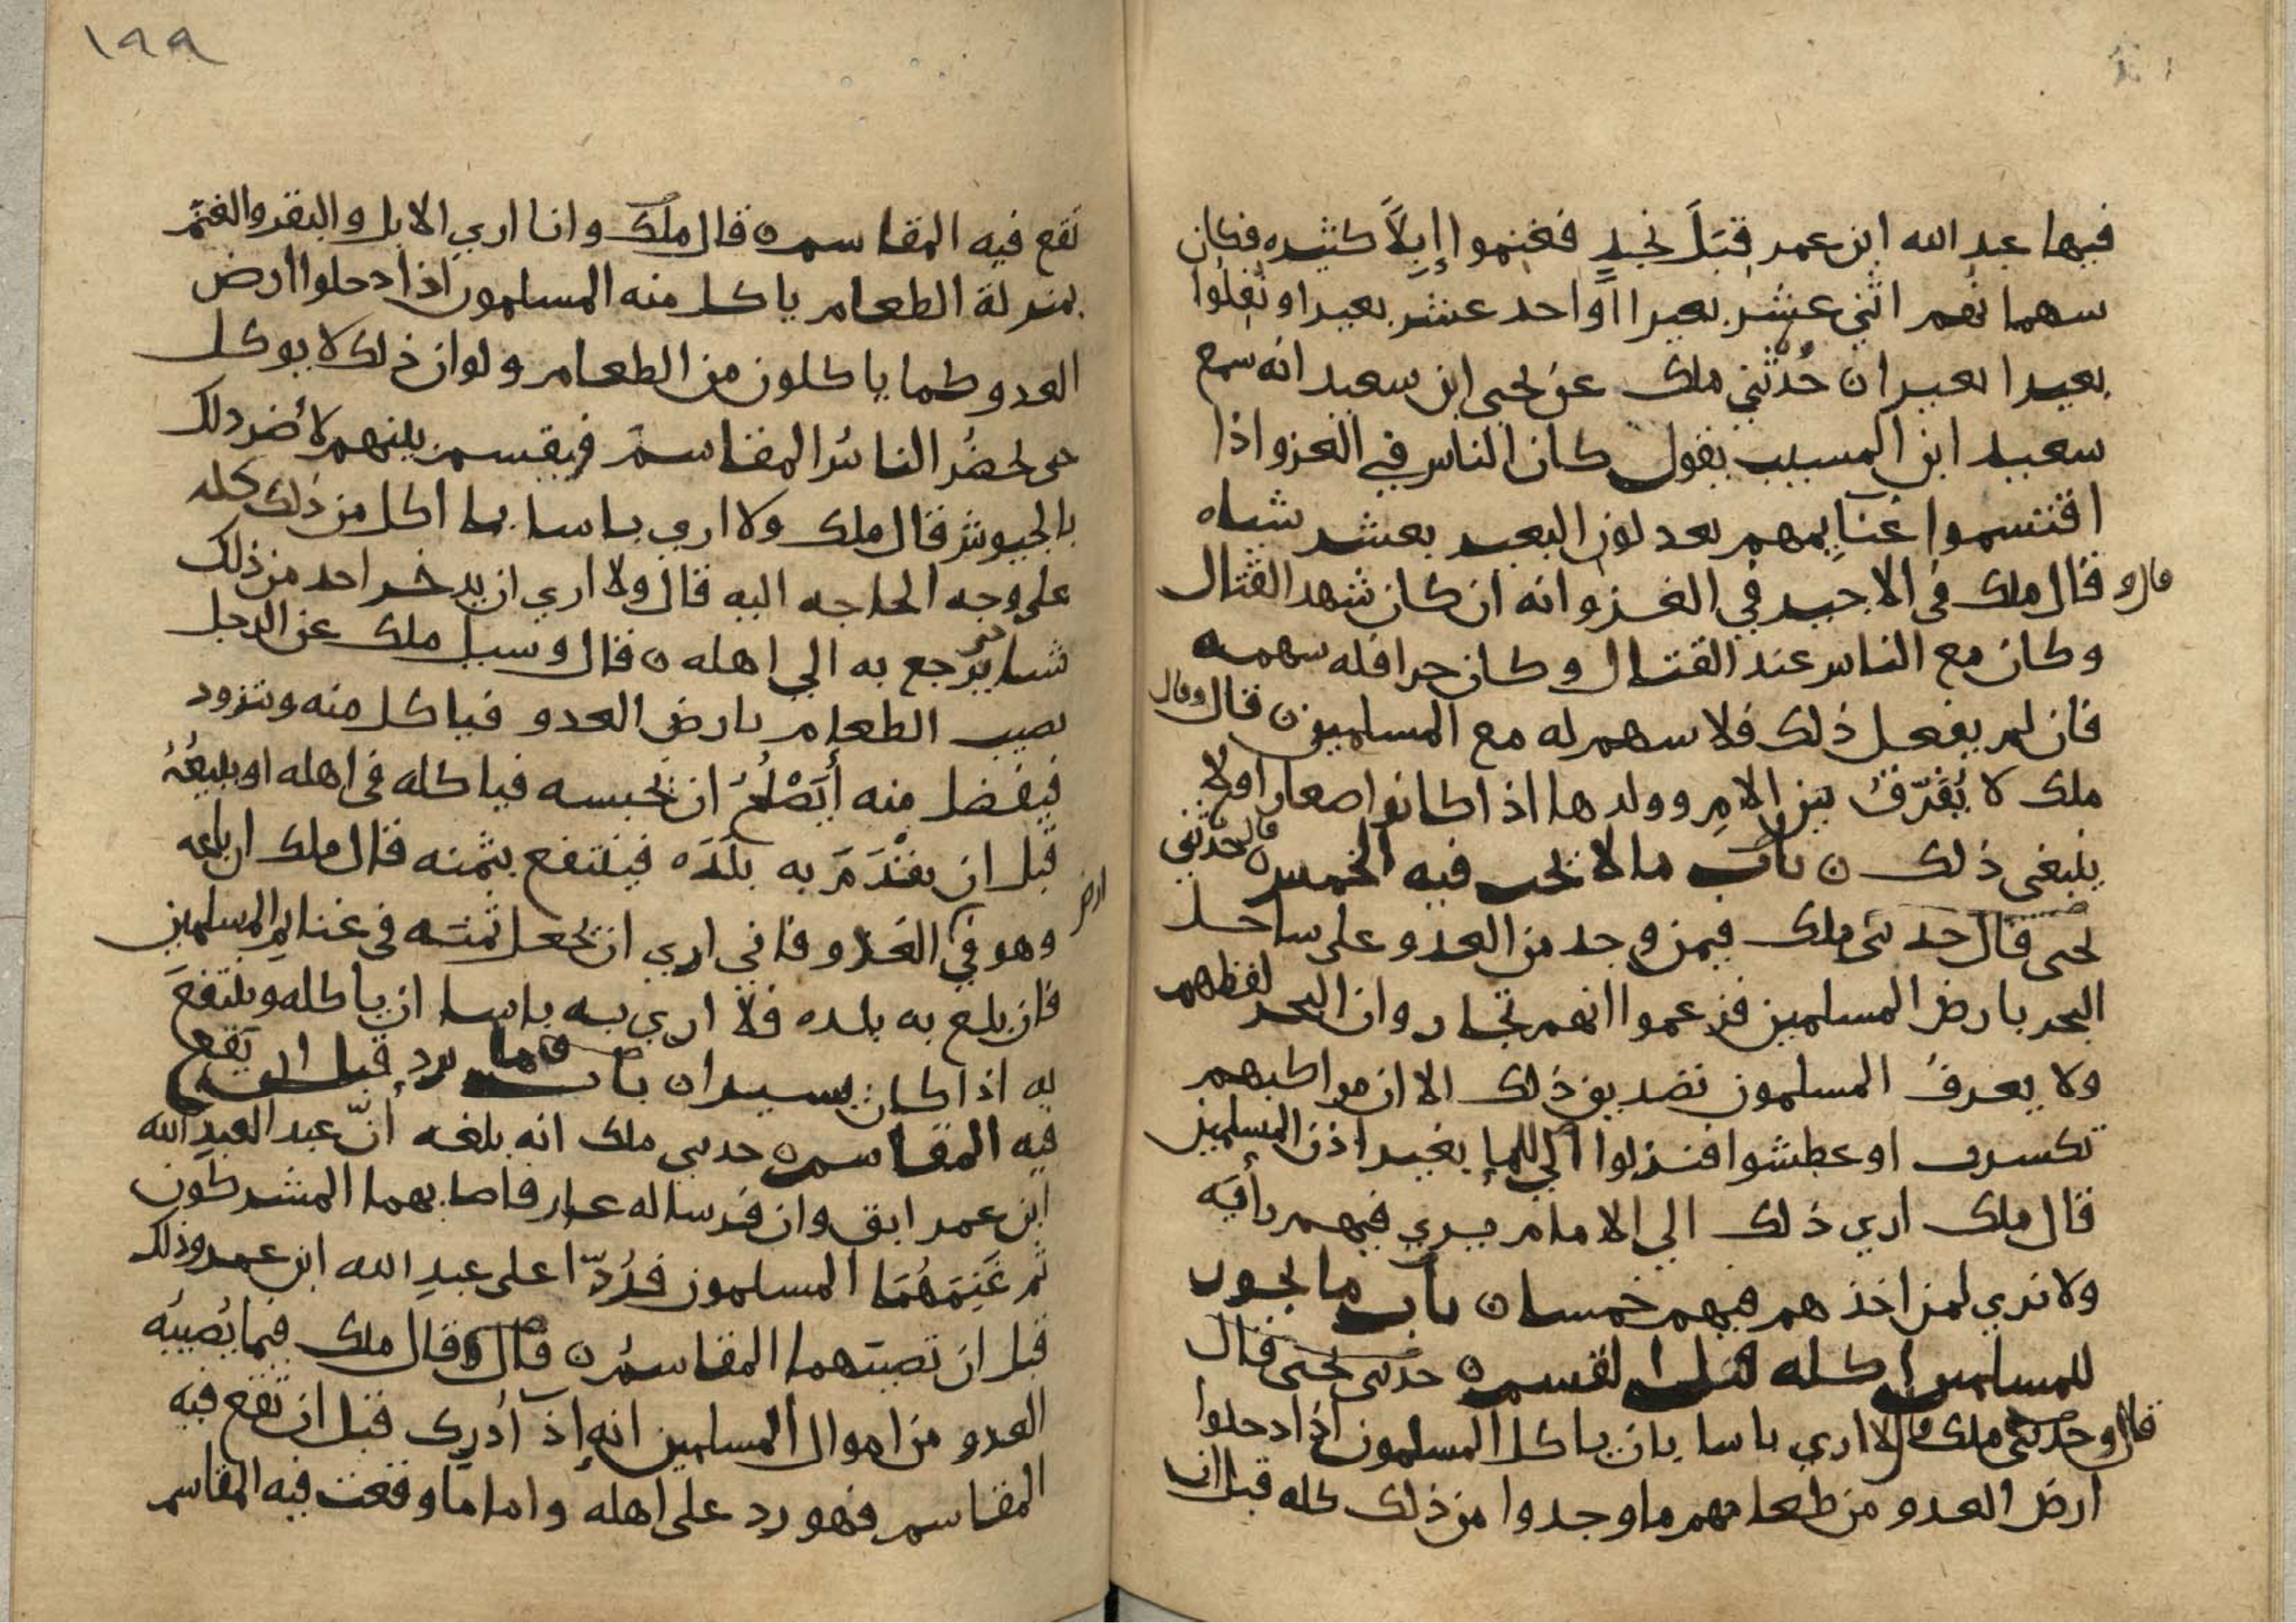 فيها عبد الله ابن عمر قِبَلَ نجدٍ فغنموا إِبِلًا كثيره فكان
سهمانهم اثني عشر بعيرا او احد عشر بعيرا ونُفِلُوا
بعيرا بعيرا ن حُدثني ملك عن يحيى ابن سعيد انه سمع
سعيد ابن المسيب يقول كان الناس في الغزو اذا
اقتسموا غنايمهم يعدلون البعير بعشر شياه
قال و قال ملك في الاجير في الغزو انه ان كان شهد القتال
وكان مع الناس عند القتال وكان حرا فله سهمه
فان لم يفعل ذلك فلا سهم له مع المسلمين ن قال وقال
ملك لا يُفَرّقُ بين الامِ وولدها اذا كانوا صغارا ولا
ينبغي ذلك ن باب ما لا يجب فيه الخمس ن قال حدثني
يحيى قال حدثني ملك فيمن وجد من العدو على ساحل
البحر بارض المسلمين فزعموا انهم تجار وان البحر لفظهم
ولا يعرفُ المسلمون تصديق ذلك الا ان مراكبهم
تكسرت او عطشوا فنزلوا الي الما بغير اذن المسلمين
قال ملك اري ذلك الي الامام يري فيهم رأيه
ولا نري لمن اخذهم فيهم خمسا ن باب ما يجوز
للمسلمين اكله قبل القسم ن حدثني يحيى قال
قال وحدثني ملك قال لا اري باسا بان ياكل المسلمون اذا دخلوا
ارض العدو من طعامهم ما وجدوا من ذلك كله قبل ان
١٩٩
تقع فيه المقاسم ن قال ملك وانا اري الابل والبقر والغنم
بمنزلة الطعام ياكل منه المسلمون اذا دخلوا ارض
العدو كما ياكلون من الطعام ولو ان ذلك لا يوكل
حتى يحضُر الناسُ المقاسم فيقسم بينهم لأضر ذلك
بالجيوش قال ملك ولا اري باسا بما اكل من ذلك كله
على وجه الحاجه اليه قال ولا اري ان يدخر احد من ذلك
شيا يرجع به الي اهله ن قال وسيل ملك عن الرجل
يصيب الطعام بارض العدو فياكل منه ويتزود
فيفضل منه أَيَصْلُحُ ان يحبسه فياكله في اهله او يبيعُهُ
قبل ان يقْدَمَ به بلَدَه فينتفع بثمنه قال ملك ان باعه
ارض
وهو في الغزو فاني اري ان يجعل ثمنه في غنايم المسلمين
فان بلغ به بلده فلا اري به باسا ان ياكله وينتفعَ
به اذا كان يسيرا ن باب ما يرد قبل ان يقع
فيه المقاسم ن حدثني ملك انه بلغه أنّ عبد العبدِ الله
ابن عمر ابق وان فرسا له عار فاصابهما المشركون
ثم غَنِمَهُمَا المسلمون فرُدّا على عبدِ الله ابن عمر وذلك
قبل ان تصيبهما المقاسمُ ن قال وقال ملك فيما يُصيبُه
العدو من اموال المسلمين انه إذ أُدرِك قبل ان تقع فيه
المقاسم فهو رد على اهله واما ما وقعت فيه المقاسم